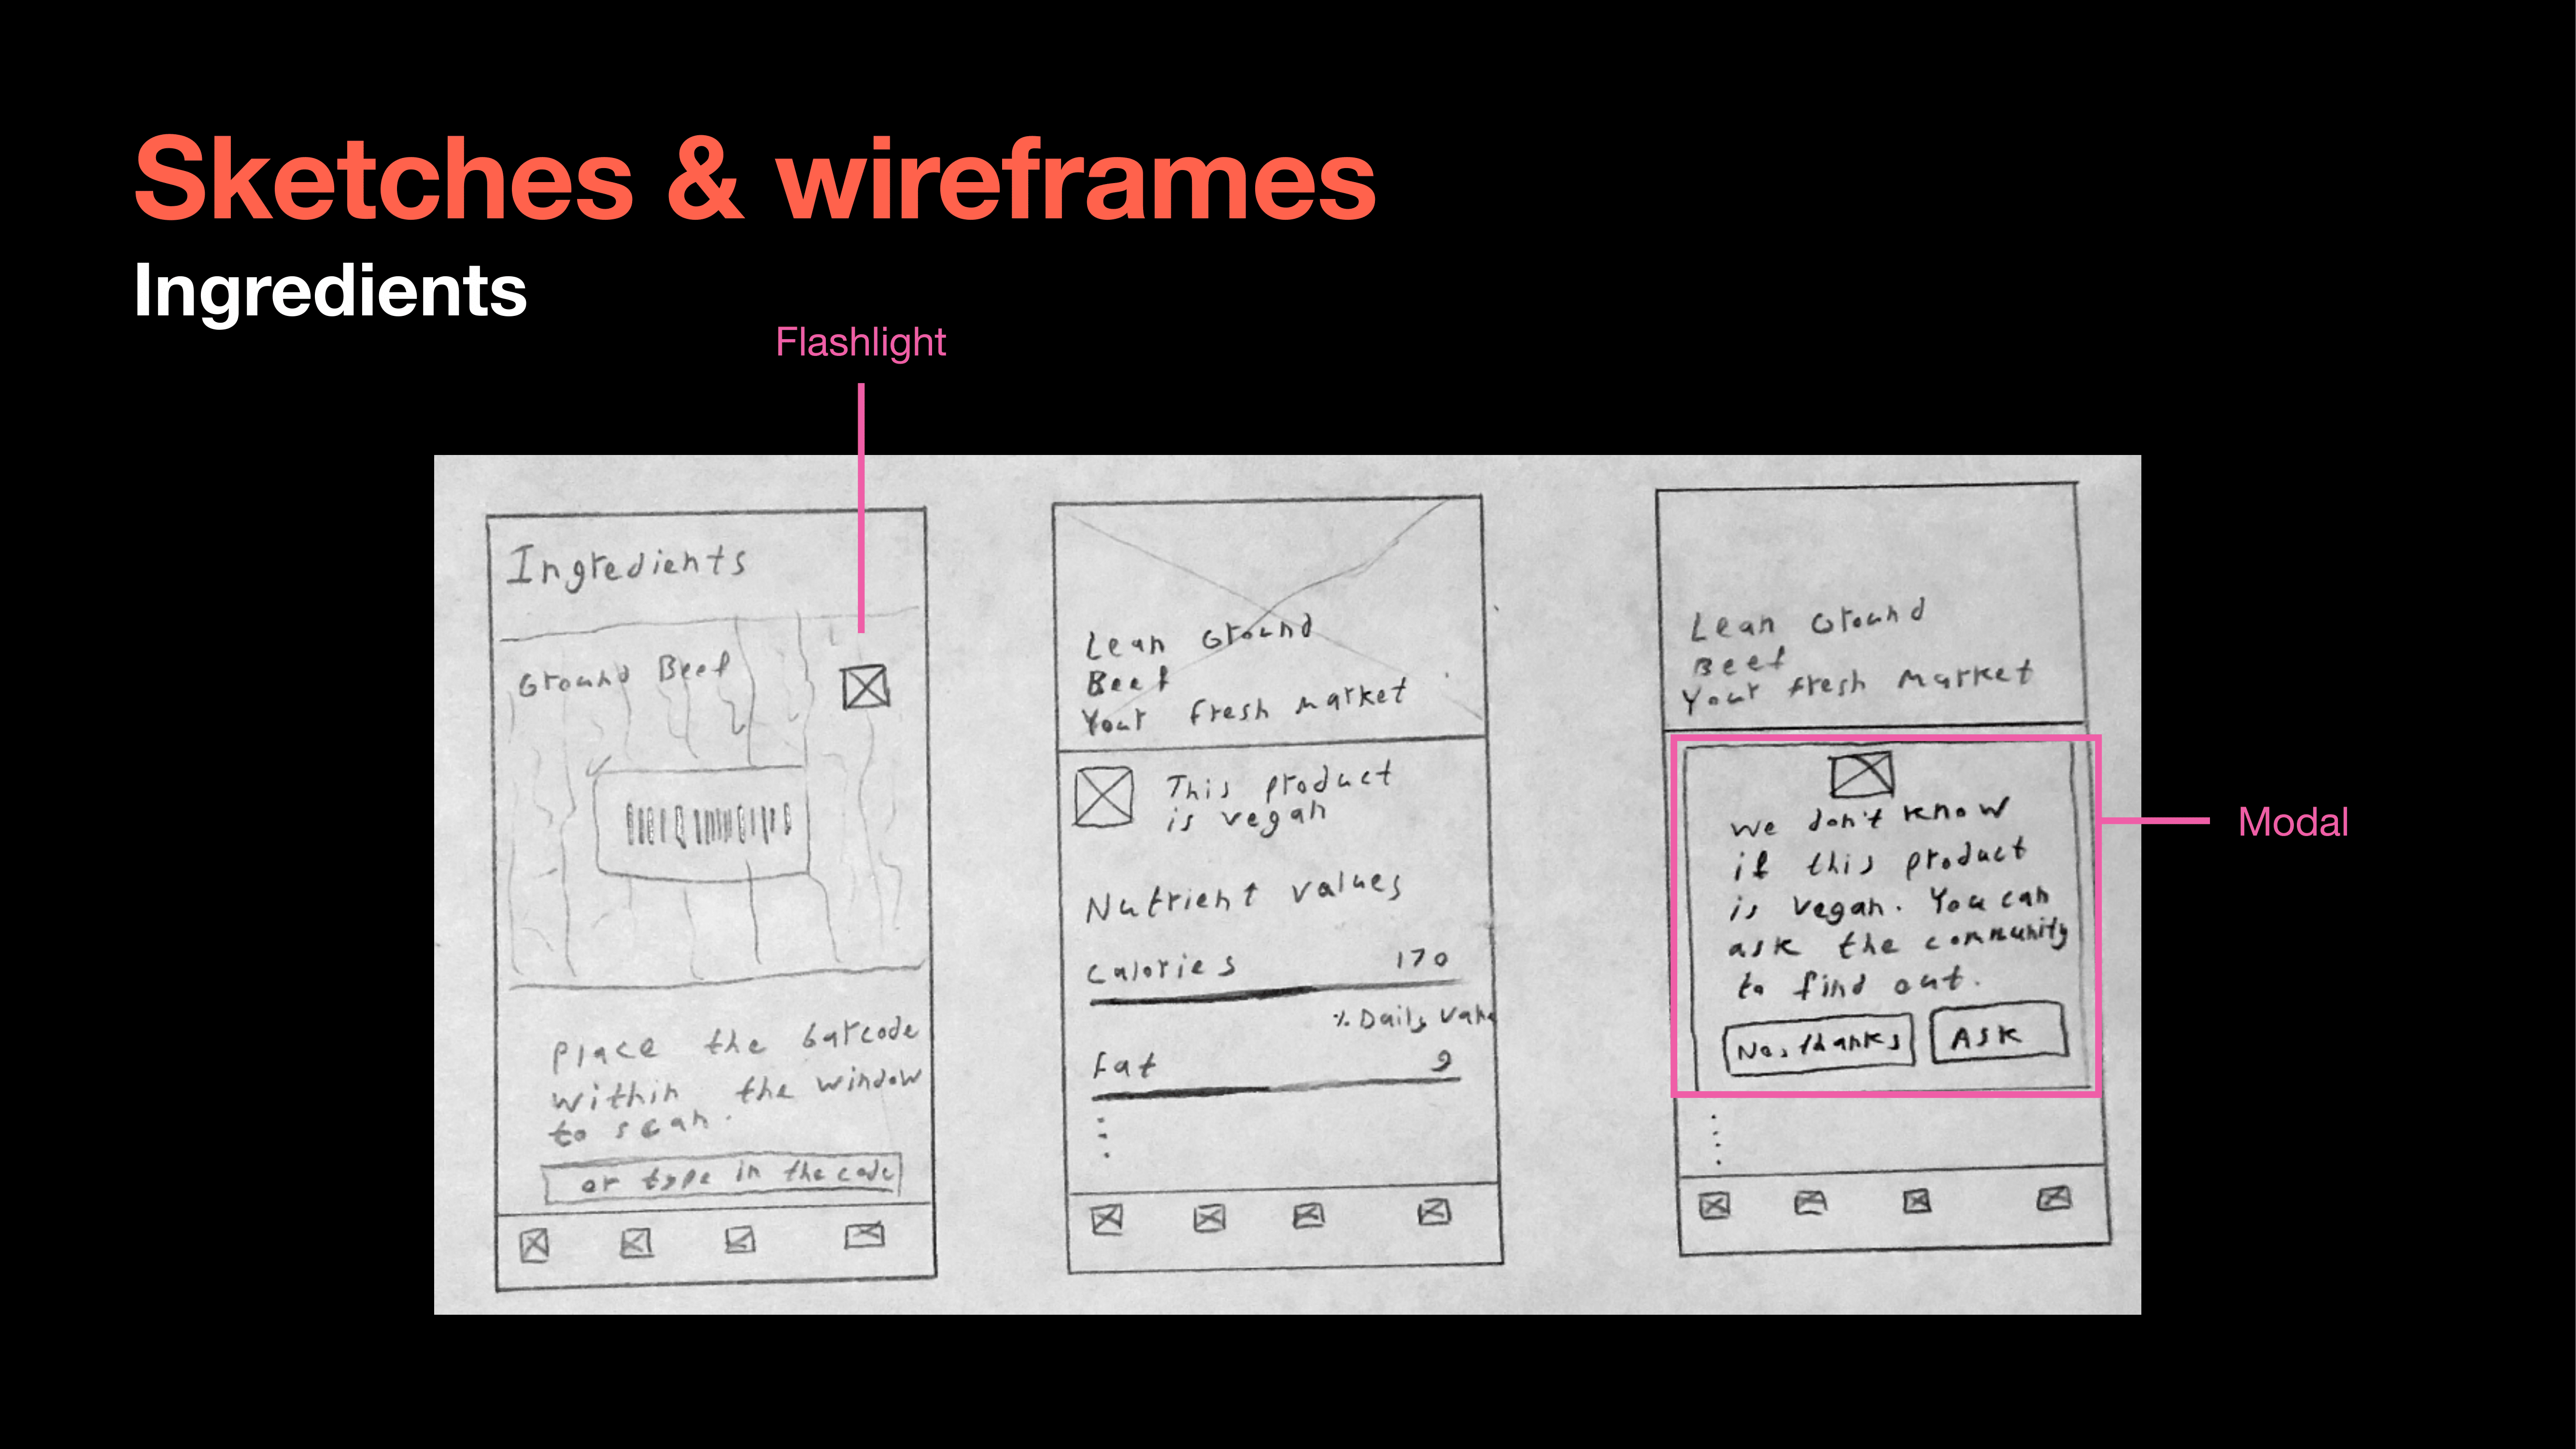 Sketches & wireframes
Ingredients
Flashlight
Ingredients
Ground Beef
Place the barcode
within the window
to scan.
or type in the code
Lean Ground
Beef
Your fresh market
This product
is vegan
Nutrient values
Calories 170
% Daily Value
Fat 9
Lean Ground
Beef
Your fresh market
We don't know
if this product
is vegan. You can
ask the community
to find out.
No, thanks Ask
Modal